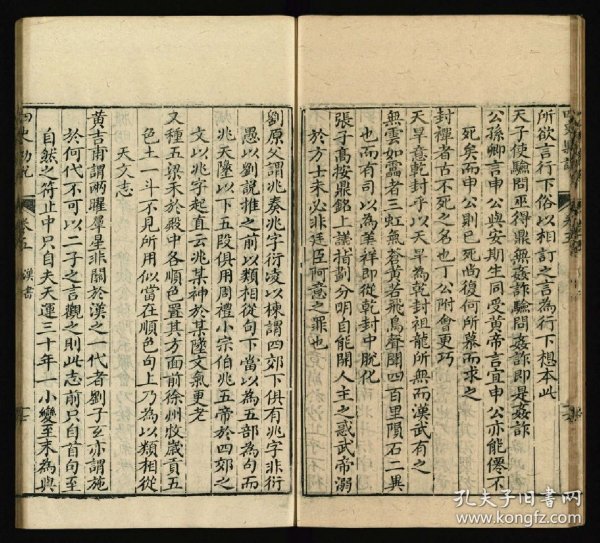 所欲言行下俗以相訂之言為行下想本此
天子使驗問巫得鼎無姦詐驗問姦詐即是姦詐
公孫卿言申公與安期生同受黃帝言宜申公亦能僊不
死矣而申公則已死尚復何所慕而求之
封禪者古不死之名也丁公附會更巧
天旱意乾封乎以天旱為乾封祖龍所無而漢武有之
無雲如靁者三虹氣蒼黃若飛鳥聲聞四百里隕石二異
也而有司以為美祥即從乾封中脫化
張子高按鼎銘上議指劃分明自能開人主之惑武帝溺
於方士末必非廷臣阿意之罪也
劉原父謂兆奏兆字衍凌以棟謂四郊下俱有兆字非衍
愚以劉說推之前以類相從句下當以為五部為句而
兆天墬以下五段俱用周禮小宗伯兆五帝於四郊之
文以兆字起直云兆某神於某墬文氣更老
又種五梁禾於殿中各順色置其方面前徐州收歲貢五
色土一斗不見所用似當在順色句上乃為以類相從
天文志
黃吉甫謂兩暒羣星非關於漢之一代者劉子玄亦謂施
於何代不可以二子之言觀之則此志前只自首句至
自然之符止中只自夫天運三十年一小變至末為典
四史勦說
卷五
漢書
孔夫子旧书网
www.kongfz.com